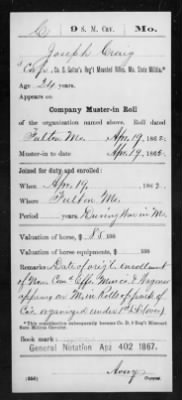 C | 9 S. M. Cav. | Mo.
Joseph Craig
Co. G, Guitar's Reg't Mounted Rifles, Mo. State Militia.*
Age 24 years.
Appears on
Company Muster-in Roll
of the organization named above. Roll dated
Fulton Mo. Apr. 19, 1862.
Muster-in to date Apr. 19, 1862.
Joined for duty and enrolled:
When Apr. 19, 1862.
Where Fulton Mo.
Period years. During war in Mo.
Valuation of horse, $ 85 100
Valuation of horse equipments, $ 100
Remarks: Date of orig'l enrollment
of Non Com'd Offs. Music's &
appears on M. in Rolls of
Co's organized under
*This organization subsequently became Co. 9 Reg't Missouri
State Militia Cavalry.
Book mark:
General Notation Apr 402 1867.
Avery
(356) Copyist.